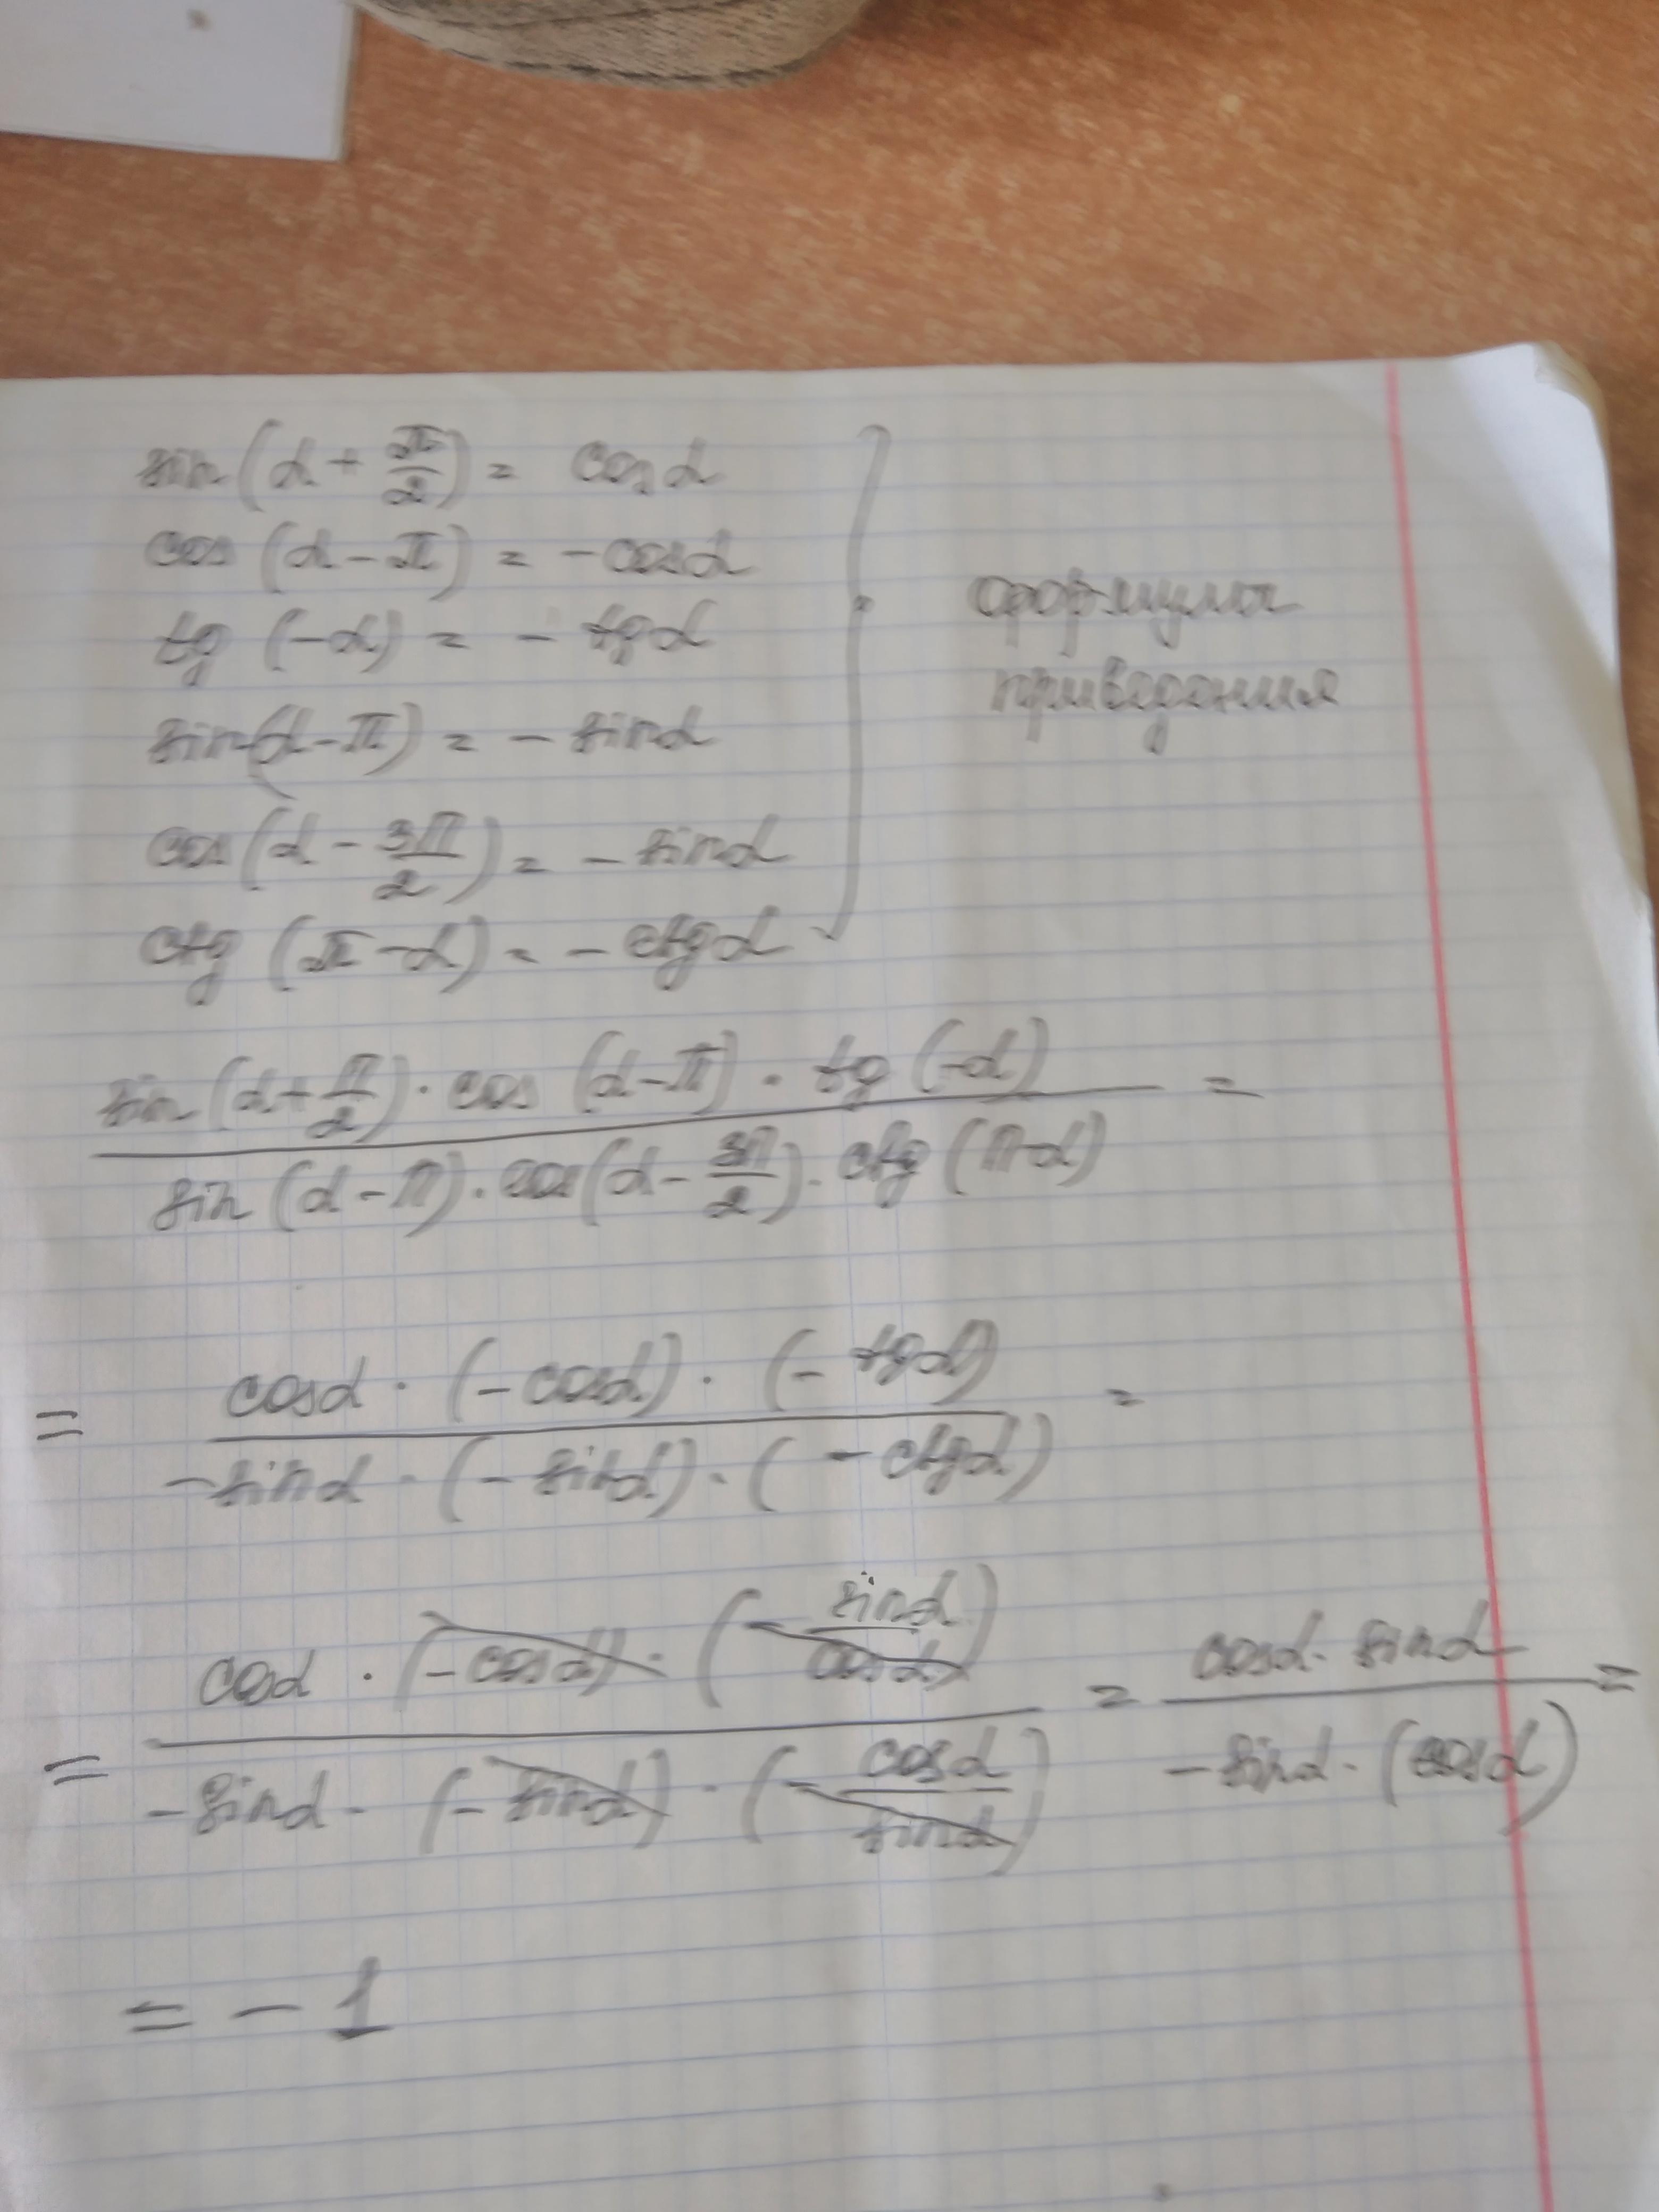 sin(α + π/2) = cosα
cos(α - π) = -cosα
tg(-α) = - tgα
sin(α - π) = - sinα
cos(α - 3π/2) = - sinα
ctg(π - α) = - ctgα
формулы
приведения
sin(α + π/2) · cos(α - π) · tg(-α) =
sin(α - π) · cos(α - 3π/2) · ctg(π-α)
= cosα · (-cosα) · (- tgα) =
-sinα · (- sinα) · (- ctgα)
= cosα · (-cosα) · (- sinα/cosα) = cosα · sinα =
-sinα · (- sinα) · (- cosα/sinα) -sinα · (cosα)
= - 1